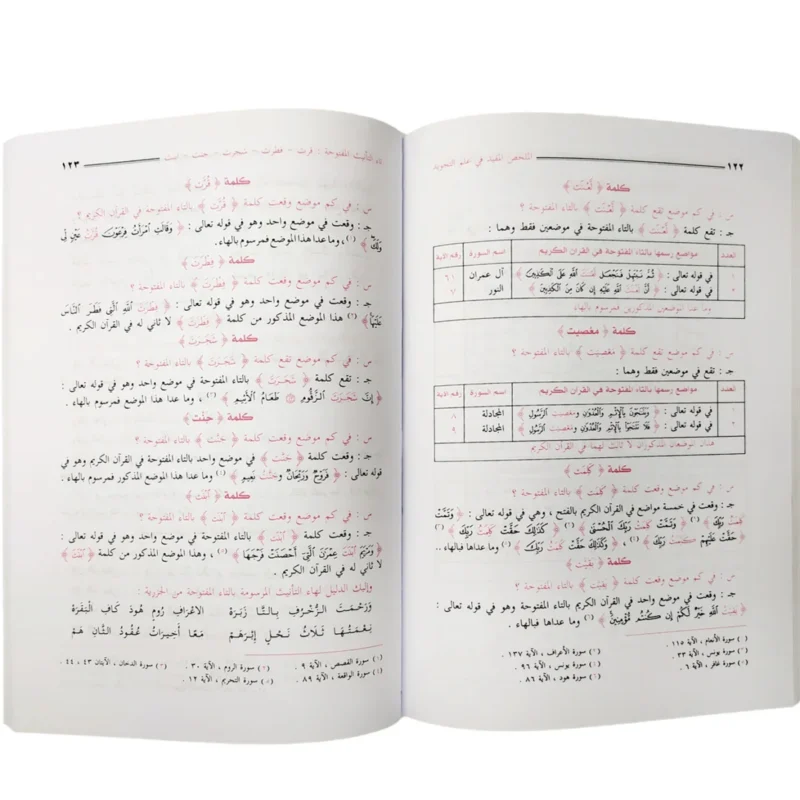 ١٢٢ الملخص المفيد في علم التجويد
كلمة ﴿ لَعْنَت ﴾
س : في كم موضع تقع كلمة ﴿ لَعْنَت ﴾ بالتاء المفتوحة ؟
جـ : تقع كلمة ﴿ لَعْنَت ﴾ بالتاء المفتوحة في موضعين فقط وهما :
العدد مواضع رسمها بالتاء المفتوحة في القرآن الكريم اسم السورة رقم الآية
١ في قوله تعالى : ﴿ ثُمَّ نَبْتَهِلْ فَنَجْعَل لَّعْنَتَ اللَّهِ عَلَى الْكَاذِبِينَ ﴾ آل عمران ٦١
٢ في قوله تعالى : ﴿ أَنَّ لَعْنَتَ اللَّهِ عَلَيْهِ إِن كَانَ مِنَ الْكَاذِبِينَ ﴾ النور ٧
وما عدا الموضعين المذكورين فمرسوم بالهاء
كلمة ﴿ مَعْصِيَت ﴾
س : في كم موضع تقع كلمة ﴿ مَعْصِيَت ﴾ بالتاء المفتوحة ؟
جـ : تقع في موضعين فقط وهما :
العدد مواضع رسمها بالتاء المفتوحة في القرآن الكريم اسم السورة رقم الآية
١ في قوله تعالى : ﴿ وَيَتَنَاجَوْنَ بِالْإِثْمِ وَالْعُدْوَانِ وَمَعْصِيَتِ الرَّسُولِ ﴾ المجادلة ٨
٢ في قوله تعالى : ﴿ فَلَا تَتَنَاجَوْا بِالْإِثْمِ وَالْعُدْوَانِ وَمَعْصِيَتِ الرَّسُولِ ﴾ المجادلة ٩
هذان الموضعان المذكوران لا ثالث لهما في القرآن الكريم
كلمة ﴿ كَلِمَت ﴾
س : في كم موضع وقعت كلمة ﴿ كَلِمَت ﴾ بالتاء المفتوحة ؟
جـ : وقعت في خمسة مواضع في القرآن الكريم بالفتح ، وهي في قوله تعالى : ﴿ وَتَمَّتْ
كَلِمَتُ رَبِّكَ ﴾ (١) ﴿ وَتَمَّتْ كَلِمَتُ رَبِّكَ الْحُسْنَىٰ ﴾ (٢) ﴿ كَذَٰلِكَ حَقَّتْ كَلِمَتُ رَبِّكَ ﴾ (٣) ﴿
حَقَّتْ عَلَيْهِمْ كَلِمَتُ رَبِّكَ ﴾ ، ﴿ وَكَذَٰلِكَ حَقَّتْ كَلِمَتُ رَبِّكَ ﴾ وما عداها فبالهاء ..
كلمة ﴿ بَقِيَّت ﴾
س : في كم موضع وقعت كلمة ﴿ بَقِيَّت ﴾ بالتاء المفتوحة ؟
جـ : وقعت في موضع واحد في القرآن الكريم بالتاء المفتوحة وهو في قوله تعالى :
﴿ بَقِيَّتُ اللَّهِ خَيْرٌ لَّكُمْ إِن كُنتُم مُّؤْمِنِينَ ﴾ (٦) وما عداها فبالهاء .
(١) سورة الأنعام ، الآية ١١٥ . (٢) سورة الأعراف ، الآية ١٣٧ .
(٣) سورة يونس ، الآية ٣٣ . (٤) سورة يونس ، الآية ٩٦ .
(٥) سورة غافر ، الآية ٦ . (٦) سورة هود ، الآية ٨٦ .
تاء التأنيث المفتوحة : قرت - فطرت - شجرت - جنت - ابنت ١٢٣
كلمة ﴿ قُرَّت ﴾
س : في كم موضع وقعت كلمة ﴿ قُرَّت ﴾ بالتاء المفتوحة في القرآن الكريم ؟
جـ : وقعت في موضع واحد وهو في قوله تعالى : ﴿ وَقَالَتِ امْرَأَتُ فِرْعَوْنَ قُرَّتُ عَيْنٍ لِّي
وَلَكَ ﴾ (١) ، وما عدا هذا الموضع فمرسوم بالهاء.
كلمة ﴿ فِطْرَت ﴾
جـ : وقعت في موضع واحد وهو في قوله تعالى : ﴿ فِطْرَتَ اللَّهِ الَّتِي فَطَرَ النَّاسَ
عَلَيْهَا ﴾ (٢) هذا الموضع المذكور من كلمة ﴿ فِطْرَت ﴾ لا ثاني له في القرآن الكريم .
كلمة ﴿ شَجَرَت ﴾
س : في كم موضع تقع كلمة ﴿ شَجَرَت ﴾ بالتاء المفتوحة ؟
جـ : تقع كلمة ﴿ شَجَرَت ﴾ بالتاء المفتوحة في موضع واحد وهو في قوله تعالى :
﴿ إِنَّ شَجَرَتَ الزَّقُّومِ ۝ طَعَامُ الْأَثِيمِ ﴾ (٣) ، وما عدا هذا الموضع فمرسوم بالهاء .
كلمة ﴿ جَنَّت ﴾
س : في كم موضع وقعت كلمة ﴿ جَنَّت ﴾ بالتاء المفتوحة في القرآن الكريم ؟
جـ : وقعت كلمة ﴿ جَنَّت ﴾ في موضع واحد بالتاء المفتوحة في القرآن الكريم وهو في
قوله تعالى : ﴿ فَرَوْحٌ وَرَيْحَانٌ وَجَنَّتُ نَعِيمٍ ﴾ (٤) وما عدا هذا الموضع فمرسوم بالهاء .
كلمة ﴿ ابْنَت ﴾
س : في كم موضع وقعت كلمة ﴿ ابْنَت ﴾ بالتاء المفتوحة ؟
جـ : وقعت كلمة ﴿ ابْنَت ﴾ بالتاء المفتوحة في موضع واحد وهو في قوله تعالى :
﴿ وَمَرْيَمَ ابْنَتَ عِمْرَانَ الَّتِي أَحْصَنَتْ فَرْجَهَا ﴾ (٥) ، وهذا الموضع المذكور من كلمة ﴿ ابْنَت ﴾
لا ثاني له في القرآن الكريم .
وإليك الدليل لهاء التأنيث المرسومة بالتاء المفتوحة من الجزرية :
وَرَحْمَتُ الزُّخْرُفِ بِالتَّا زَبَرَهْ الاعْرَافِ رُومٍ هُودَ كَافِ الْبَقَرَهْ
نِعْمَتُهَا ثَلَاثُ نَحْلٍ إِبْرَهَمْ مَعًا أَخِيرَاتٌ عُقُودُ الثَّانِ هَمْ
(١) سورة القصص ، الآية ٩ . (٢) سورة الروم ، الآية ٣٠ . (٣) سورة الدخان ، الآيتان ٤٣ ، ٤٤ .
(٤) سورة الواقعة ، الآية ٨٩ . (٥) سورة التحريم ، الآية ١٢ .